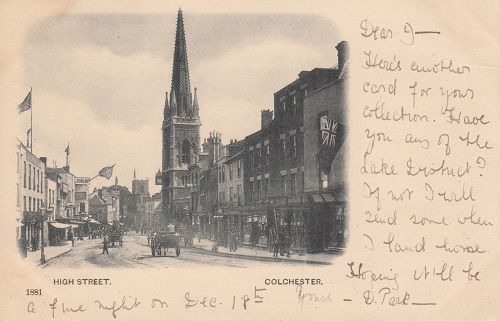 Dear J—
Here's another
card for your
collection. Have
you any of the
Lake District?
If not I will
send some when
I land home.
Hoping it'll be
a fine night on Dec. 18th Yours — D. Park —
HIGH STREET.
COLCHESTER.
1881